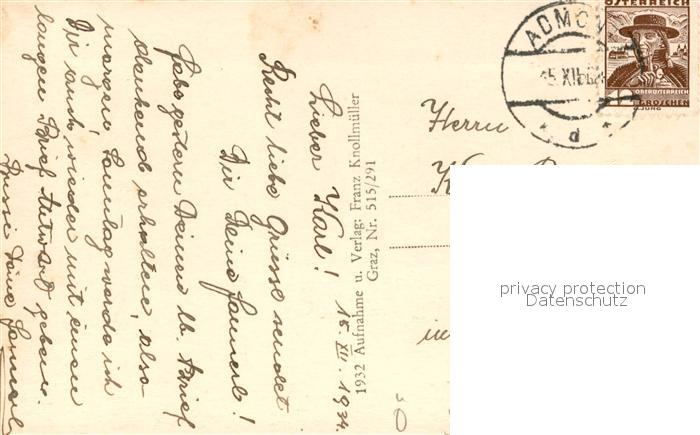 Lieber Karl! 15. XII. 1934.
Recht liebe Grüsse sendet
Dir Deine Hannerl!
Habe gestern Deinen lb. Brief
dankend erhalten, also
morgen Sonntag werde ich
Dir auch wieder mit einen
langen Brief Antwort geben.
Bussi Deine
1932 Aufnahme u. Verlag: Franz Knollmüller
Graz, Nr. 515/291
ADMON
15.XII
d
ÖSTERREICH
OBERÖSTERREICH
12 GROSCHEN
Herrn
in
privacy protection
Datenschutz